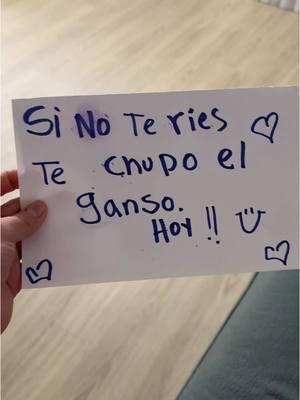 Si No Te ries
Te chupo el
ganso.
Hoy !!